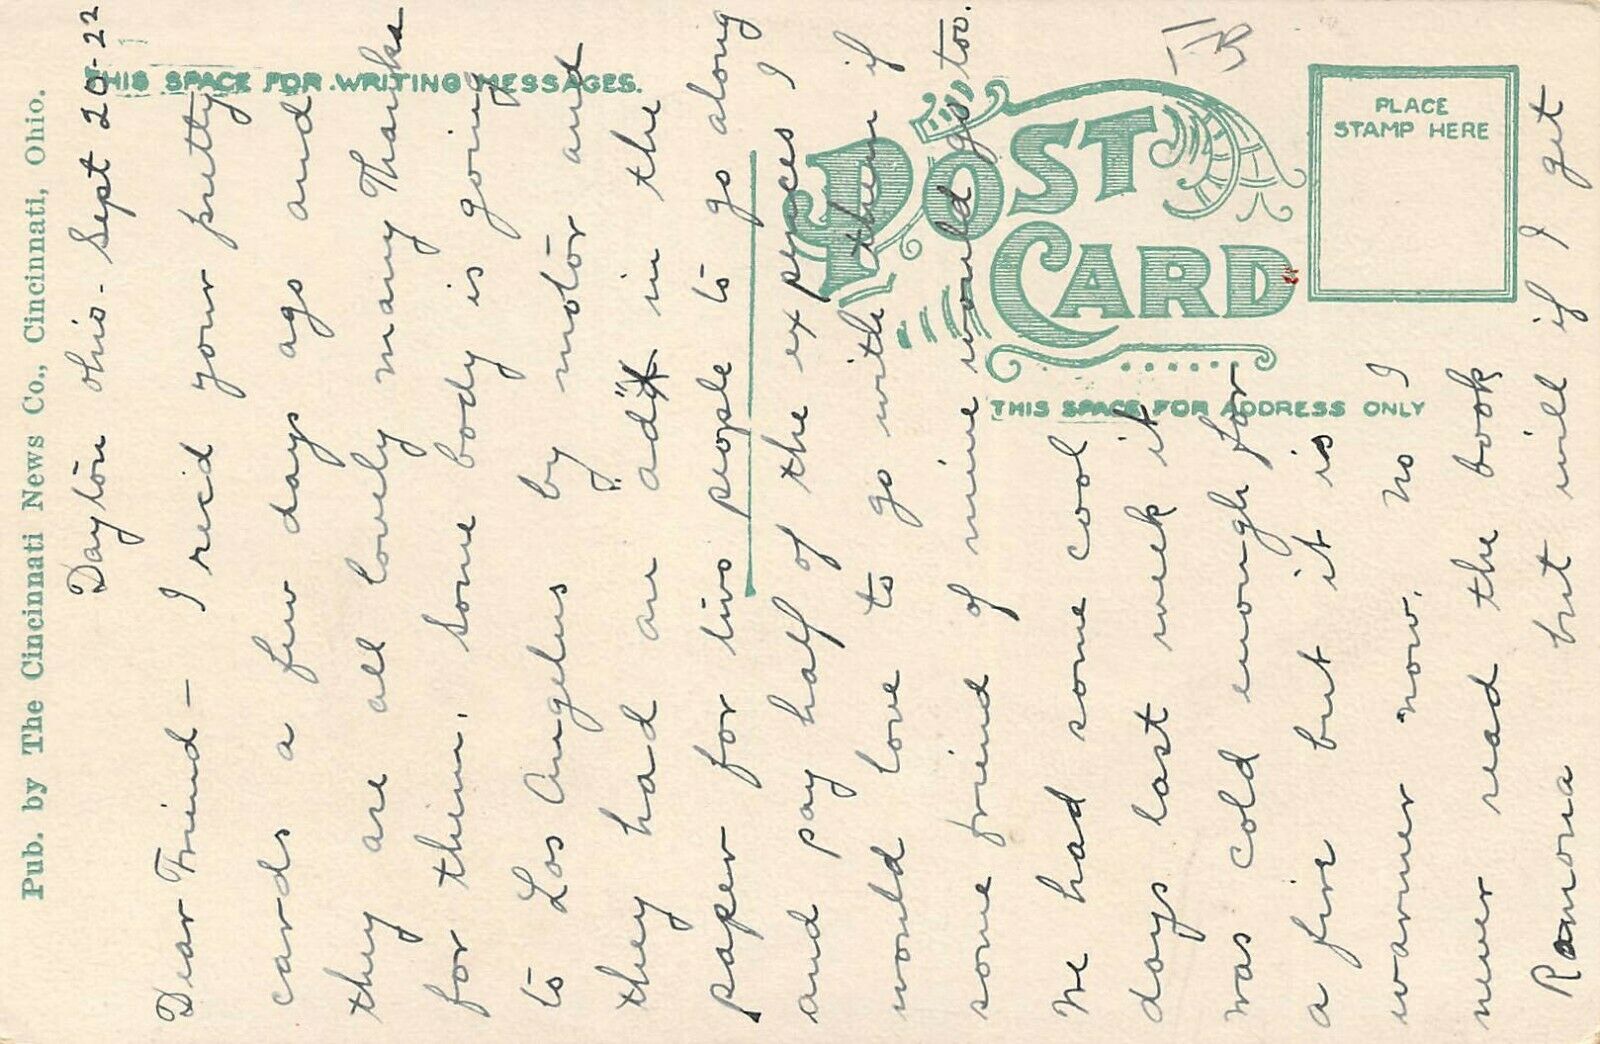 Pub. by The Cincinnati News Co., Cincinnati, Ohio.
THIS SPACE FOR WRITING MESSAGES.
POST CARD
PLACE
STAMP HERE
THIS SPACE FOR ADDRESS ONLY
Dayton Ohio - Sept 20-22
Dear Friend - I rec'd your pretty
cards a few days ago and
they are all lovely many Thanks
for them. Some body is going
to Los Angelus by motor and
they had an "ad" in the
paper for two people to go along
and pay half of the expences I
would love to go with them if
some friend of mine would go too.
We had some cool
days last week it
was cold enough for
a fire but it is
warmer now. No I
never read the book
Ramona but will if I get